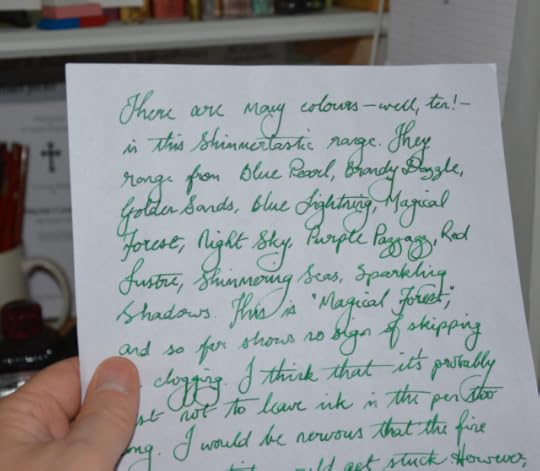 There are many colours – well, ten! –
in this Shimmertastic range. They
range from Blue Pearl, Brandy Dazzle,
Golden Sands, Blue Lightning, Magical
Forest, Night Sky, Purple Pazzazz, Red
Lustre, Shimmering Seas, Sparkling
Shadows. This is "Magical Forest",
and so far shows no sign of skipping
clogging. I think that it's probably
not to leave ink in the pen too
I would be nervous that the fine
get stuck. However,